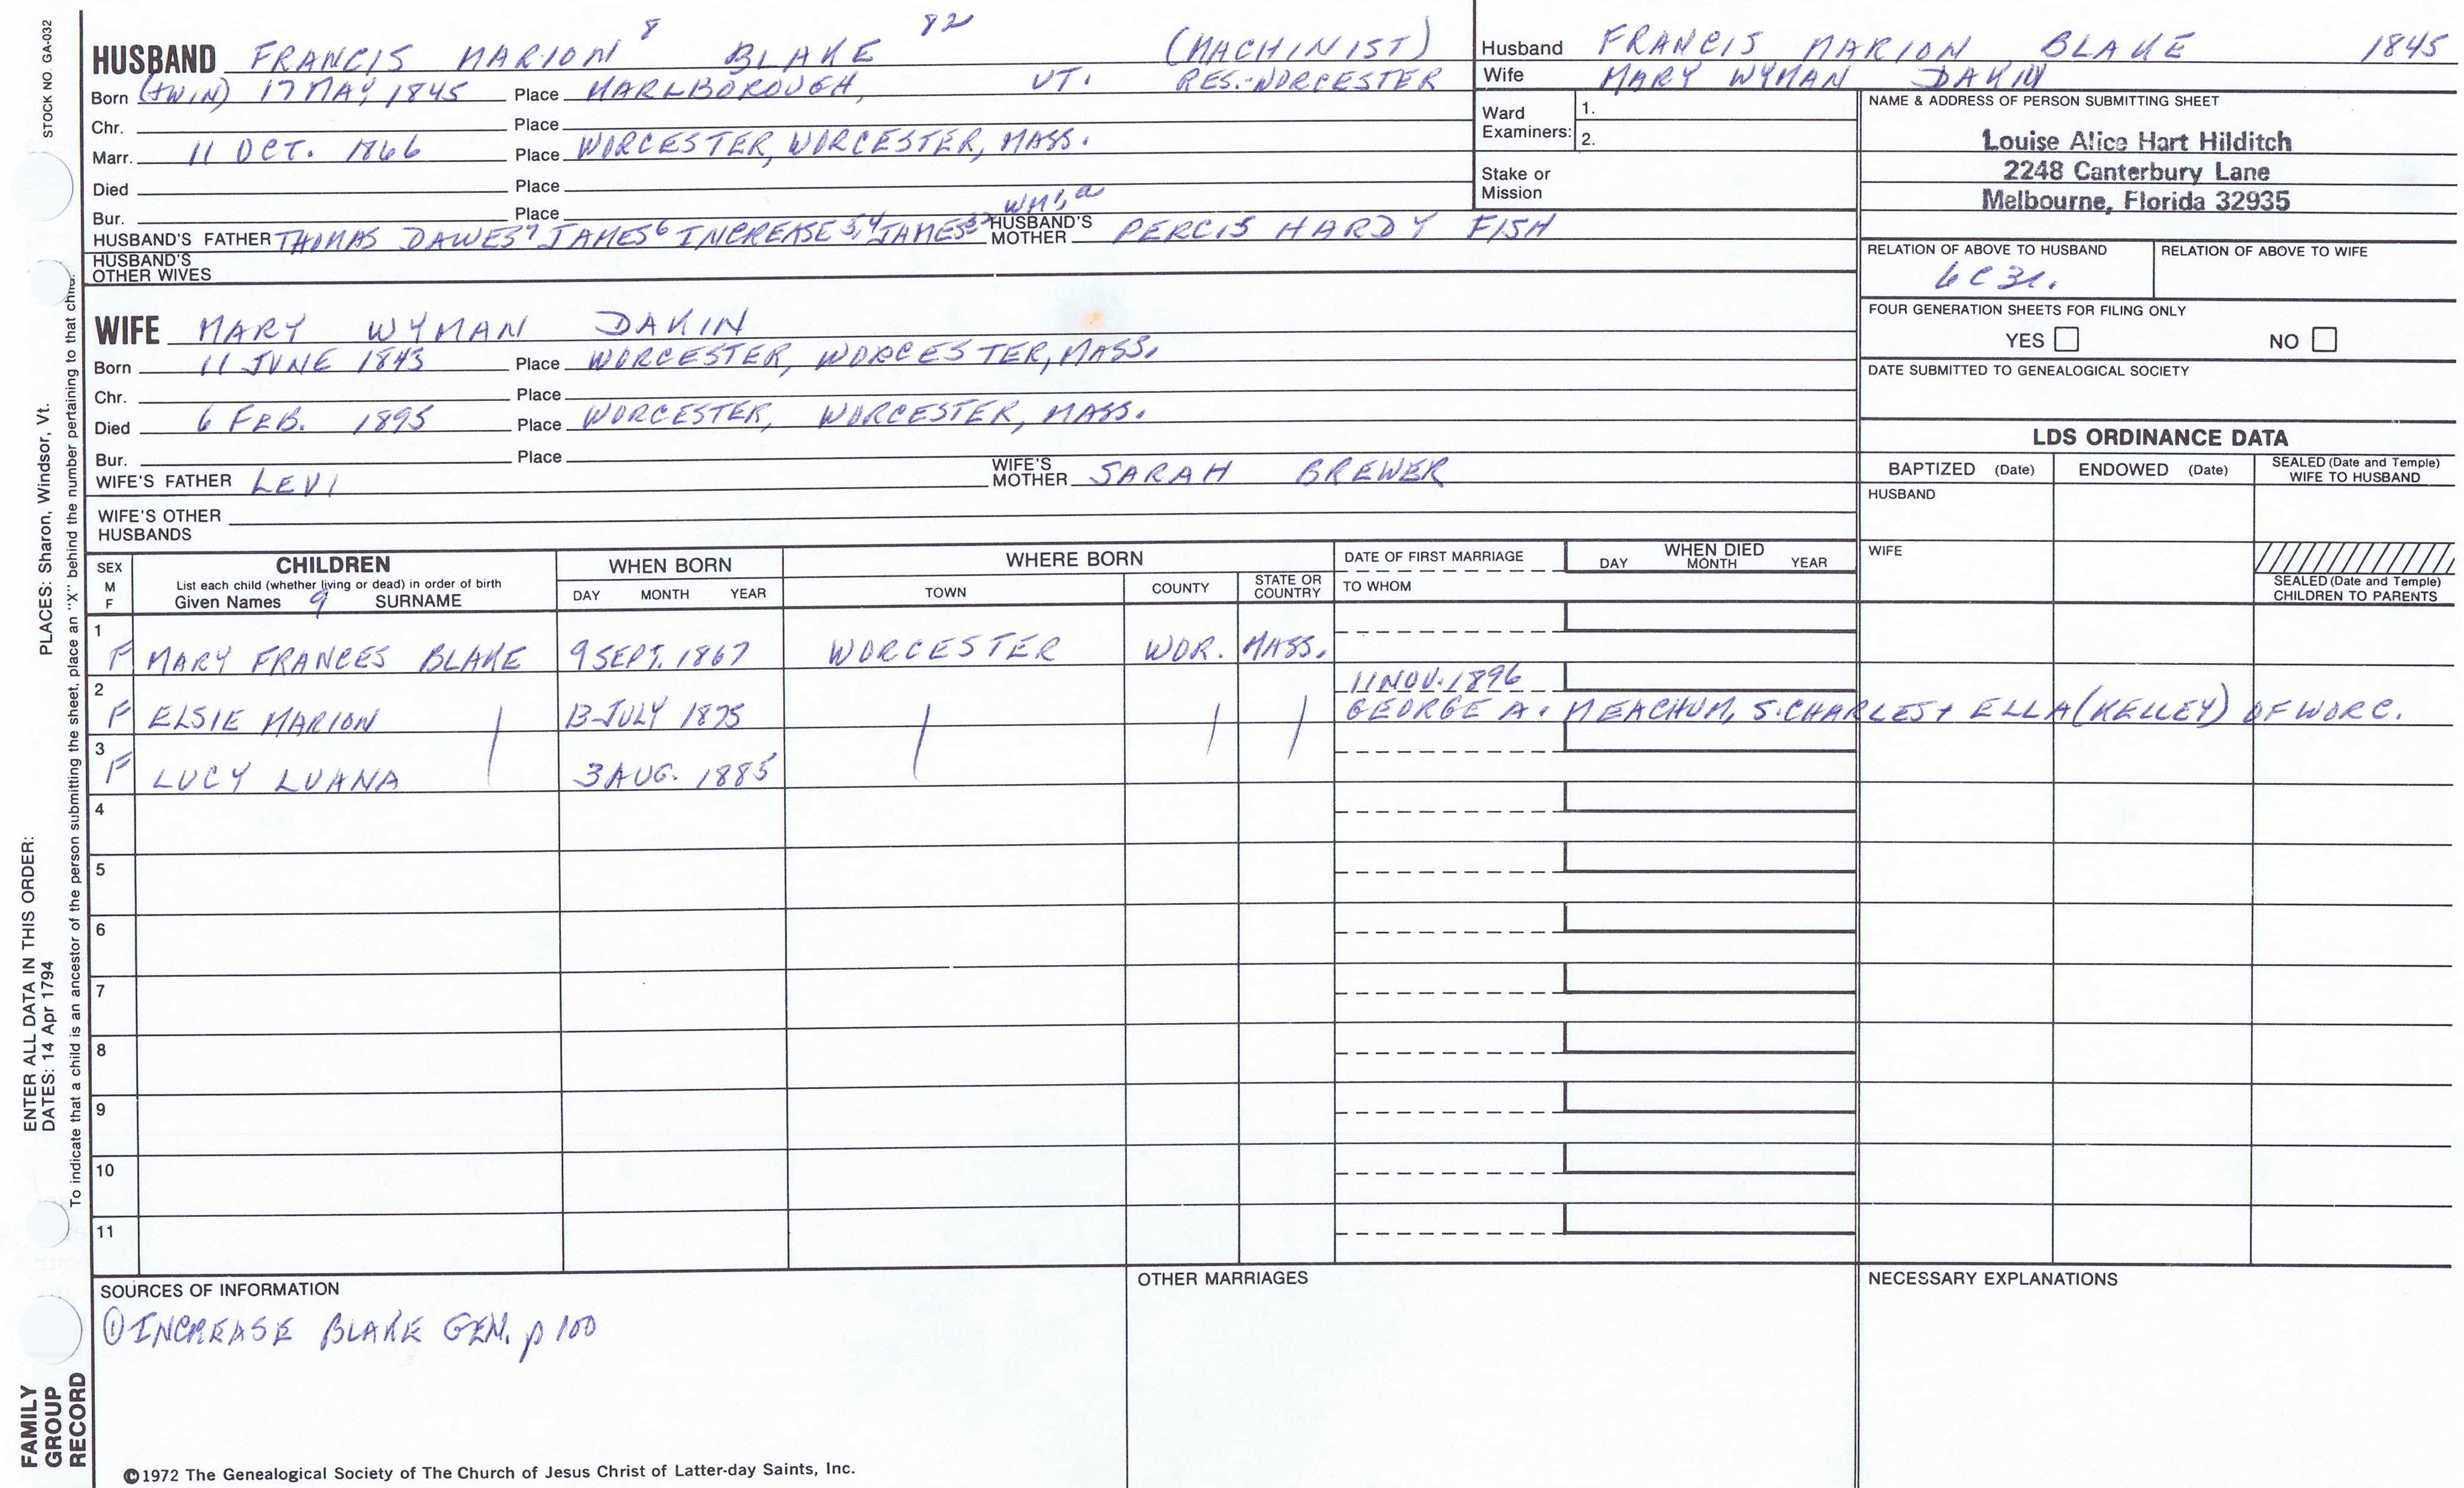 STOCK NO. GA-032
PLACES: Sharon, Windsor, Vt.
ENTER ALL DATA IN THIS ORDER:
DATES: 14 Apr 1794
To indicate that a child is an ancestor of the person submitting the sheet, place an "X" behind the number pertaining to that child.
FAMILY
GROUP
RECORD
HUSBAND FRANCIS MARION 8 BLAKE 82 (MACHINIST)
Born (TWIN) 17 MAY 1845 Place MARLBOROUGH, VT. RES.-WORCESTER
Chr. Place
Marr. 11 OCT. 1866 Place WORCESTER, WORCESTER, MASS.
Died Place
Bur. Place
HUSBAND'S FATHER THOMAS DAWES7 JAMES6 INCREASE5,4 JAMES3,2 WM1,a HUSBAND'S MOTHER PERCIS HARDY FISH
HUSBAND'S OTHER WIVES
WIFE MARY WYMAN DAKIN
Born 11 JUNE 1843 Place WORCESTER, WORCESTER, MASS.
Chr. Place
Died 6 FEB. 1895 Place WORCESTER, WORCESTER, MASS.
Bur. Place
WIFE'S FATHER LEVI WIFE'S MOTHER SARAH BREWER
WIFE'S OTHER HUSBANDS
Husband FRANCIS MARION BLAKE 1845
Wife MARY WYMAN DAKIN
Ward Examiners: 1.
2.
Stake or Mission
NAME & ADDRESS OF PERSON SUBMITTING SHEET
Louise Alice Hart Hilditch
2248 Canterbury Lane
Melbourne, Florida 32935
RELATION OF ABOVE TO HUSBAND RELATION OF ABOVE TO WIFE
6C3r.
FOUR GENERATION SHEETS FOR FILING ONLY
YES NO
DATE SUBMITTED TO GENEALOGICAL SOCIETY
LDS ORDINANCE DATA
BAPTIZED (Date) ENDOWED (Date) SEALED (Date and Temple) WIFE TO HUSBAND
HUSBAND
WIFE
SEALED (Date and Temple) CHILDREN TO PARENTS
SEX M F CHILDREN WHEN BORN WHERE BORN DATE OF FIRST MARRIAGE WHEN DIED
List each child (whether living or dead) in order of birth
Given Names 9 SURNAME DAY MONTH YEAR TOWN COUNTY STATE OR COUNTRY TO WHOM DAY MONTH YEAR
1 F MARY FRANCES BLAKE 9 SEPT. 1867 WORCESTER WOR. MASS.
11 NOV. 1896
2 F ELSIE MARION 13 JULY 1875 GEORGE A. MEACHUM, S. CHARLES + ELLA (KELLEY) OF WORC.
3 F LUCY LUANA 3 AUG. 1885
4
5
6
7
8
9
10
11
SOURCES OF INFORMATION OTHER MARRIAGES NECESSARY EXPLANATIONS
① INCREASE BLAKE GEN. p 100
©1972 The Genealogical Society of The Church of Jesus Christ of Latter-day Saints, Inc.